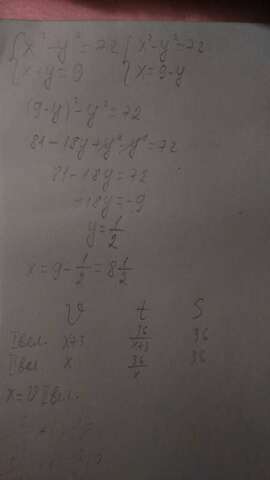 {x²-y²=72 {x²-y²=72
{x+y=9 {x=9-y
(9-y)²-y²=72
81-18y+y²-y²=72
81-18y=72
-18y=-9
y=1/2
x=9-1/2=8 1/2
V t S
I вел. x+3 36/x+3 36
II вел x 36/x 36
x=V II вел.